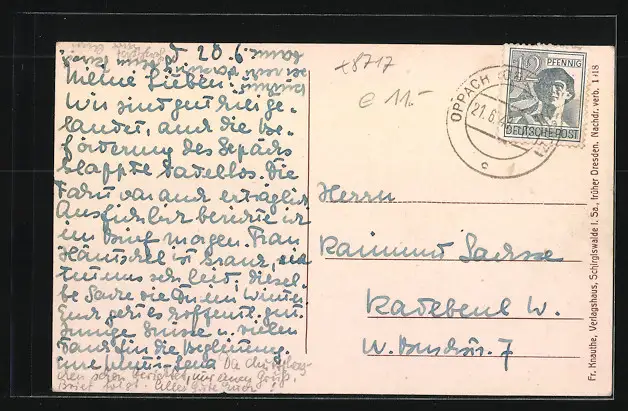 d. 20.6.
Meine Lieben!
Wir sind gut hier ge-
landet, auch die Be-
förderung des Gepäcks
klappte tadellos. Die
Fahrt war auch erträglich
Ausführlich berichte ich
im Brief morgen. Frau
Häntschel ist krank,
tut uns sehr leid, diesel-
be Sache wie Du im Winter.
Euch geht es hoffentl. gut.
Innige Grüsse u. vielen
Dank für die Begleitung.
Lena Da
schon berichtet, nur einen Gruß,
Brief folgt. Alles Gute
+8717
@ 11.-
OPPACH
21.6.4
c
12 PFENNIG
DEUTSCHE POST
Herrn
Raimund Sachse
Radebeul W.
W. 7
Fr. Knauthe, Verlagshaus, Schirgiswalde i. Sa., früher Dresden. Nachdr. verb. 1 18